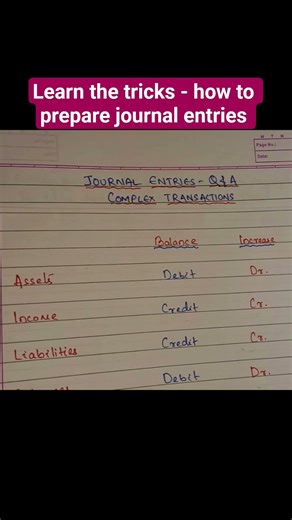 Learn the tricks - how to
prepare journal entries
M T W
Page No.:
Date:
JOURNAL ENTRIES - Q&A
COMPLEX TRANSACTIONS
Balance Increase
Assets Debit Dr.
Income Credit Cr.
Liabilities Credit Cr.
Debit Dr.